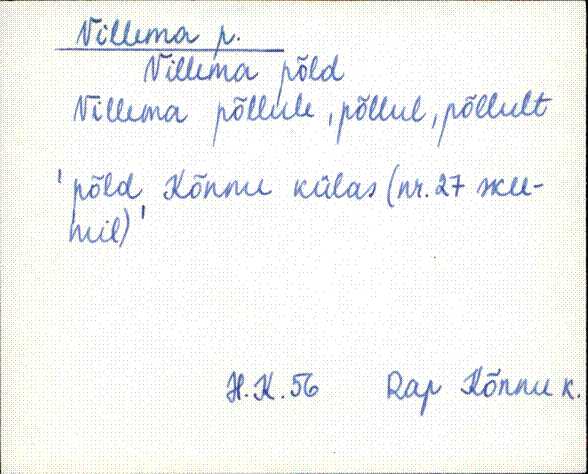 Villema p.
Villema põld
Villema põllule, põllul, põllult
'põld Kõnnu külas (nr. 27 skee-
mil)'
H.K. 56 Rap Kõnnu k.